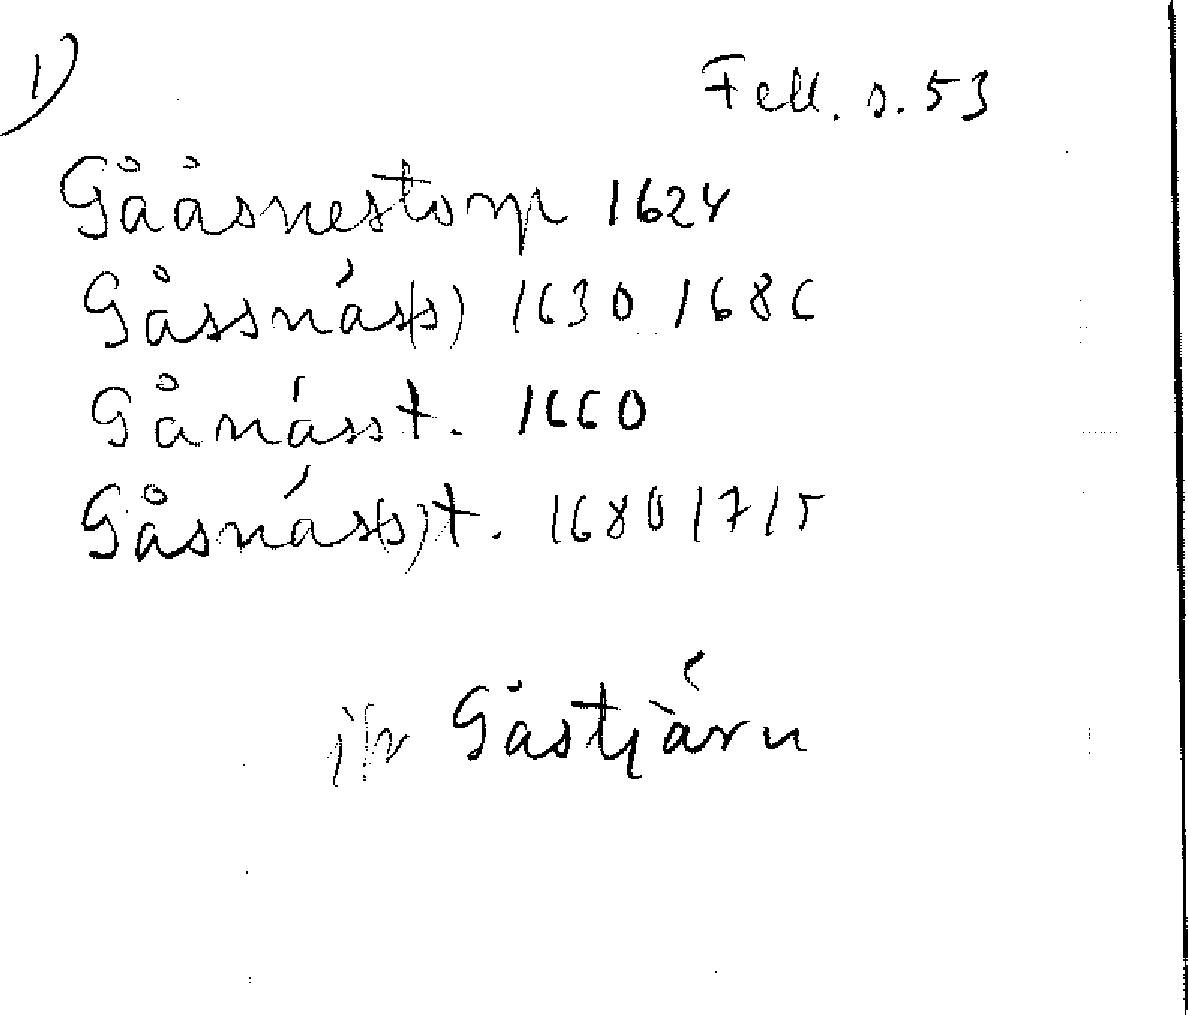 1)
Fell. s. 53
Gååsnestorp 1624
Gåssnäs(s) 1630 1686
Gånässt. 1660
Gåsnäs(s)t. 1680 1715
jfr Gåstjärn